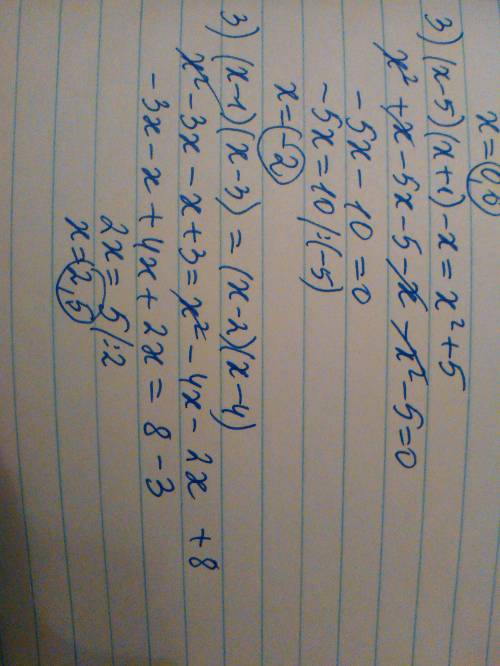 x=0,6
3) (x-5)(x+1)-x=x²+5
x²+x-5x-5-x-x²-5=0
-5x-10=0
-5x=10/:(-5)
x=-2
3) (x-1)(x-3)=(x-2)(x-4)
x²-3x-x+3=x²-4x-2x+8
-3x-x+4x+2x=8-3
2x=5/:2
x=2,5